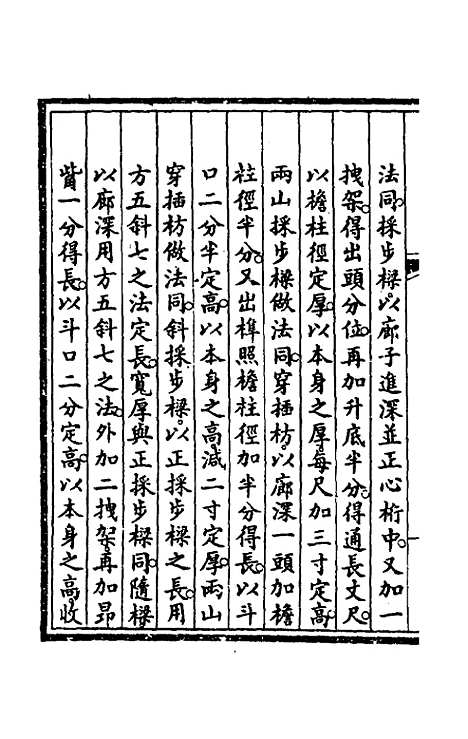 法同。採步樑。以廊子進深並正心桁中。又加一
拽架。得出頭分位。再加升底半分。得通長丈尺。
以檐柱徑定厚。以本身之厚。每尺加三寸定高。
兩山採步樑做法同。穿插枋。以廊深一頭加檐
柱徑半分。又出榫照檐柱徑加半分得長。以斗
口二分半定高。以本身之高。減二寸定厚。兩山
穿插枋做法同。斜採步樑。以正採步樑之長。用
方五斜七之法定長。寬厚與正採步樑同。隨樑
以廊深用方五斜七之法。外加二拽架。再加昂
嘴一分得長。以斗口二分定高。以本身之高。收